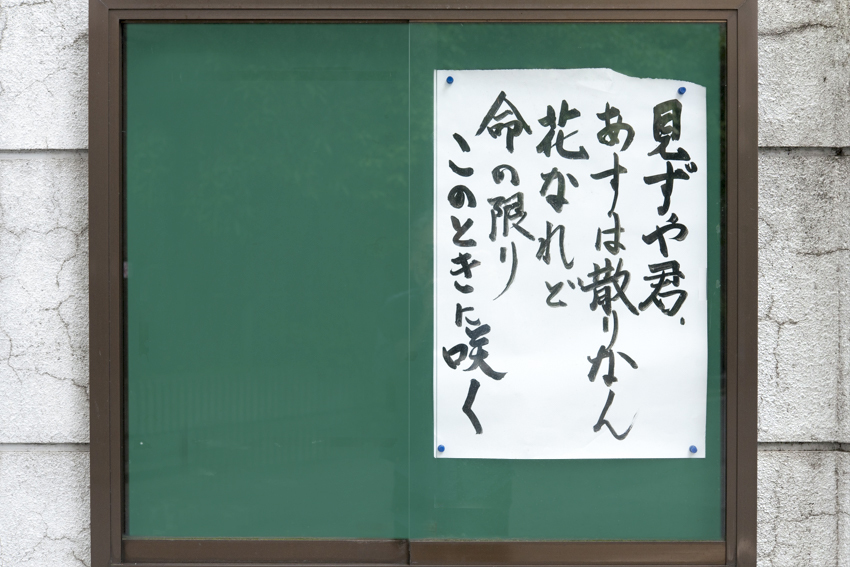 見ずや君、
あすは散りなん
花なれど
命の限り
このときに咲く